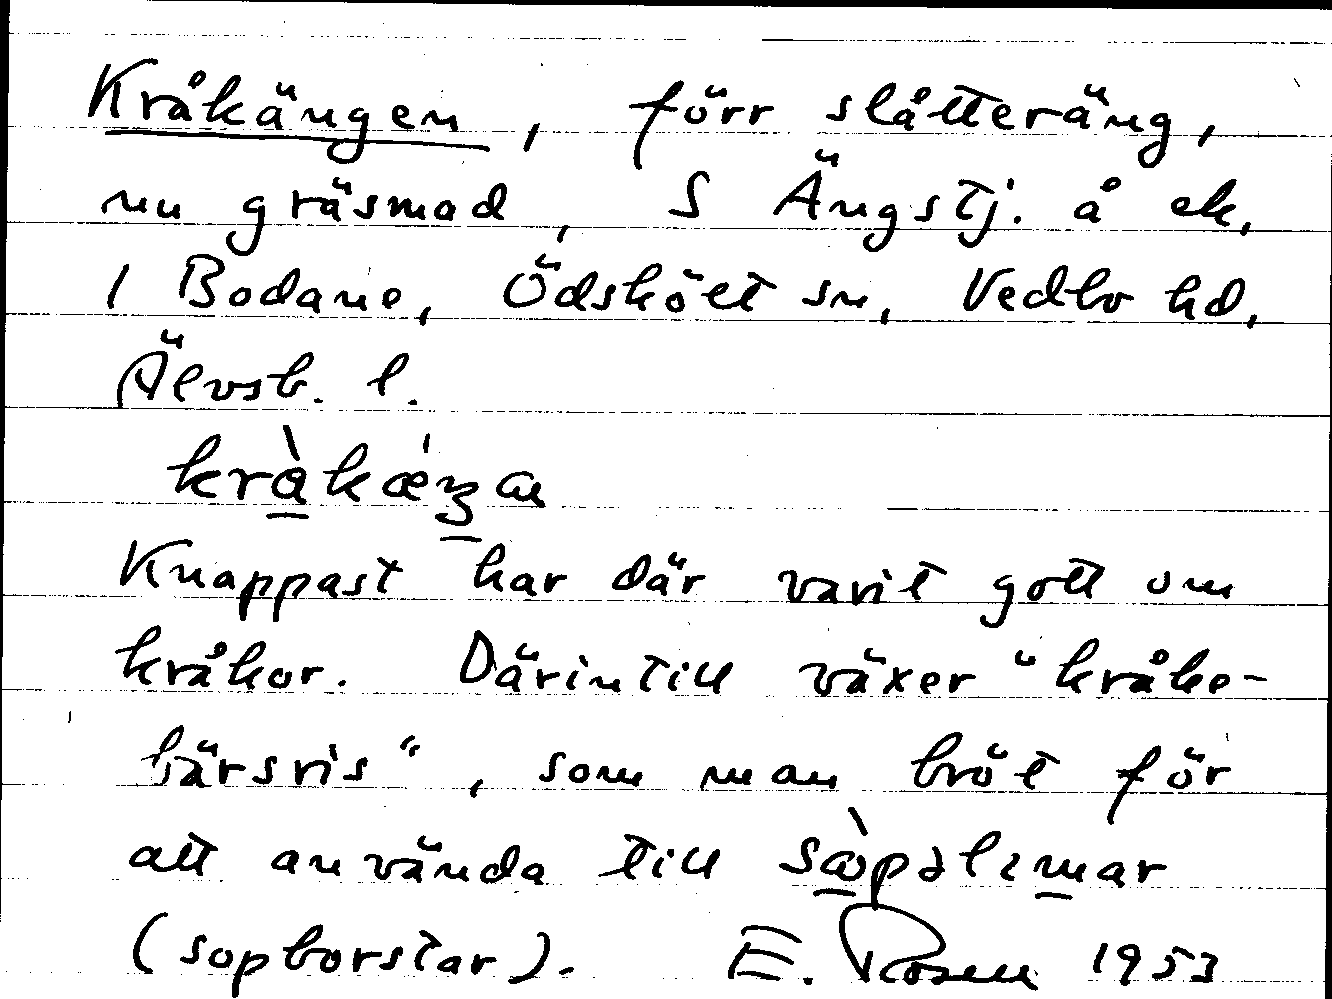 Kråkängen, förr slåtteräng,
nu gräsmad, S Ängstj. å ek,
1 Bodane, Ödskölt sn, Vedbo hd,
Älvsb. l.
Knappast har där varit gott om
kråkor. Därintill växer "kråke-
bärsris", som man bröt för
att använda till
(sopborstar). E. Rosen 1953